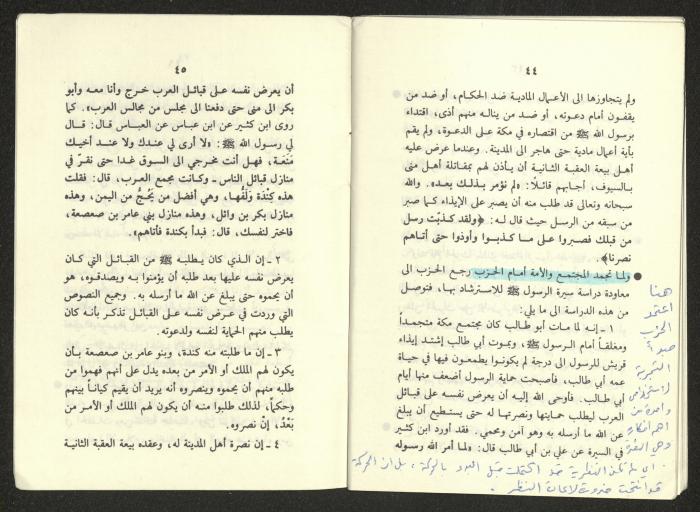 ٤٤
ولم يتجاوزها الى الأعمال المادية ضد الحكام، أو ضد من
يقفون أمام دعوته، أو ضد من يناله منهم أذى، اقتداء
برسول الله ﷺ من اقتصاره في مكة على الدعوة، ولم يقم
بأية أعمال مادية حتى هاجر الى المدينة. وعندما عرض عليه
أهل بيعة العقبة الثانية أن يأذن لهم بمقاتلة أهل منى
بالسيوف، أجابهم قائلًا: «لم نؤمر بذلك بعد». والله
سبحانه وتعالى قد طلب منه أن يصبر على الإيذاء كما صبر
من سبقه من الرسل حيث قال له: ﴿ولقد كذبّت رسل
من قبلك فصبروا على ما كذبوا وأوذوا حتى أتاهم
نصرنا﴾.
ولما تجمد المجتمع والأمة أمام الحزب رجع الحزب الى
معاودة دراسة سيرة الرسول ﷺ للاسترشاد بها، فتوصل
من هذه الدراسة الى ما يلي:
١ - إنه لما مات أبو طالب كان مجتمع مكة متجمداً
ومغلقاً أمام الرسول ﷺ، وبموت أبي طالب إشتد إيذاء
قريش للرسول الى درجة لم يكونوا يطمعون فيها في حياة
عمه أبي طالب، فأصبحت حماية الرسول أضعف منها أيام
أبي طالب. فأوحى الله إليه أن يعرض نفسه على قبائل
العرب ليطلب حمايتها ونصرتها له حتى يستطيع أن يبلغ
عن الله ما أرسله به وهو آمن ومحمي. فقد أورد ابن كثير
في السيرة عن علي بن أبي طالب قال: «لما أمر الله رسوله
هنا
اعتمد
الحزب
مبدأ
التجربة
واحدة من
أهم أفكاره
وهي النصرة
أي لم تكن النظرية قد اكتملت قبل البدء بالحركة، بل ان الحركة
٤٥
أن يعرض نفسه على قبائل العرب خرج وأنا معه وأبو
بكر الى منى حتى دفعنا الى مجلس من مجالس العرب». كما
روى ابن كثير عن ابن عباس عن العباس قال: قال
لي رسول الله ﷺ: «لا أرى لي عندك ولا عند أخيك
مَنَعَة، فهل أنت مخرجي الى السوق غدا حتى نقرّ في
منازل قبائل الناس - وكانت مجمع العرب، قال: فقلت
هذه كِنْدَة ولَفُّها، وهي أفضل من يَحُجُّ من اليمن، وهذه
منازل بكر بن وائل، وهذه منازل بني عامر بن صعصعة،
فاختر لنفسك، قال: فبدأ بكندة فأتاهم».
٢ - إن الذي كان يطلبه ﷺ من القبائل التي كان
يعرض نفسه عليها بعد طلبه أن يؤمنوا به ويصدقوه، هو
أن يحموه حتى يبلغ عن الله ما أرسله به. وجميع النصوص
التي وردت في عرض نفسه على القبائل تذكر بأنه كان
يطلب منهم الحماية لنفسه ولدعوته.
٣ - إن ما طلبته منه كندة، وبنو عامر بن صعصعة بأن
يكون لهم الملك أو الأمر من بعده يدل على أنهم فهموا من
طلبه منهم أن يحموه وينصروه أنه يريد أن يقيم كياناً بينهم
وحكماً، لذلك طلبوا منه أن يكون لهم الملك أو الأمر من
بَعْدُ، إنْ نصروه.
٤ - إن نصرة أهل المدينة له، وعقده بيعة العقبة الثانية